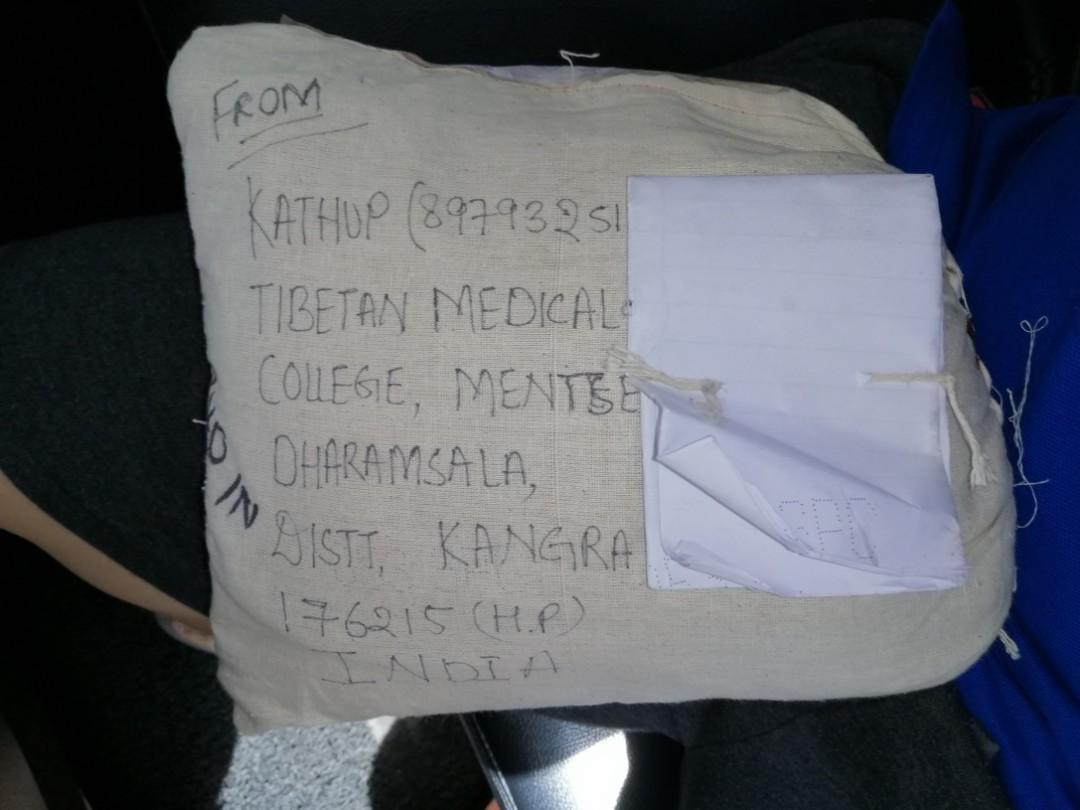 FROM
KATHUP (89793251
TIBETAN MEDICAL
COLLEGE, MENTSEE
DHARAMSALA,
DISTT, KANGRA
176215 (H.P)
INDIA